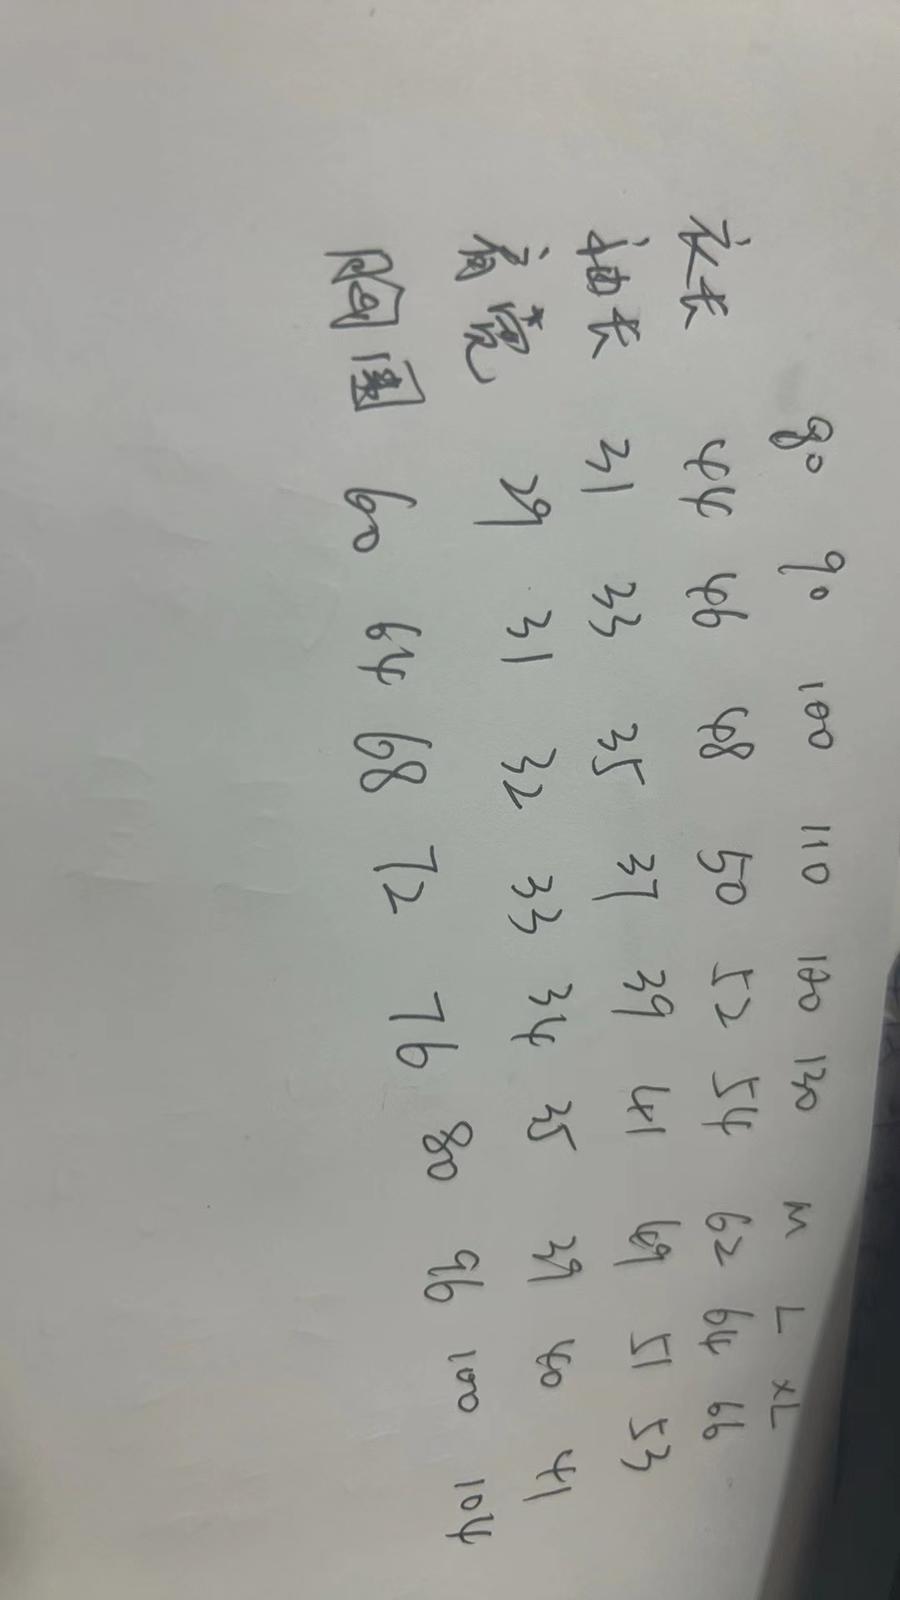 80 90 100 110 120 130 M L XL
衣长 44 46 48 50 52 54 62 64 66
袖长 31 33 35 37 39 41 49 51 53
肩宽 29 31 32 33 34 35 39 40 41
胸围 60 64 68 72 76 80 96 100 104